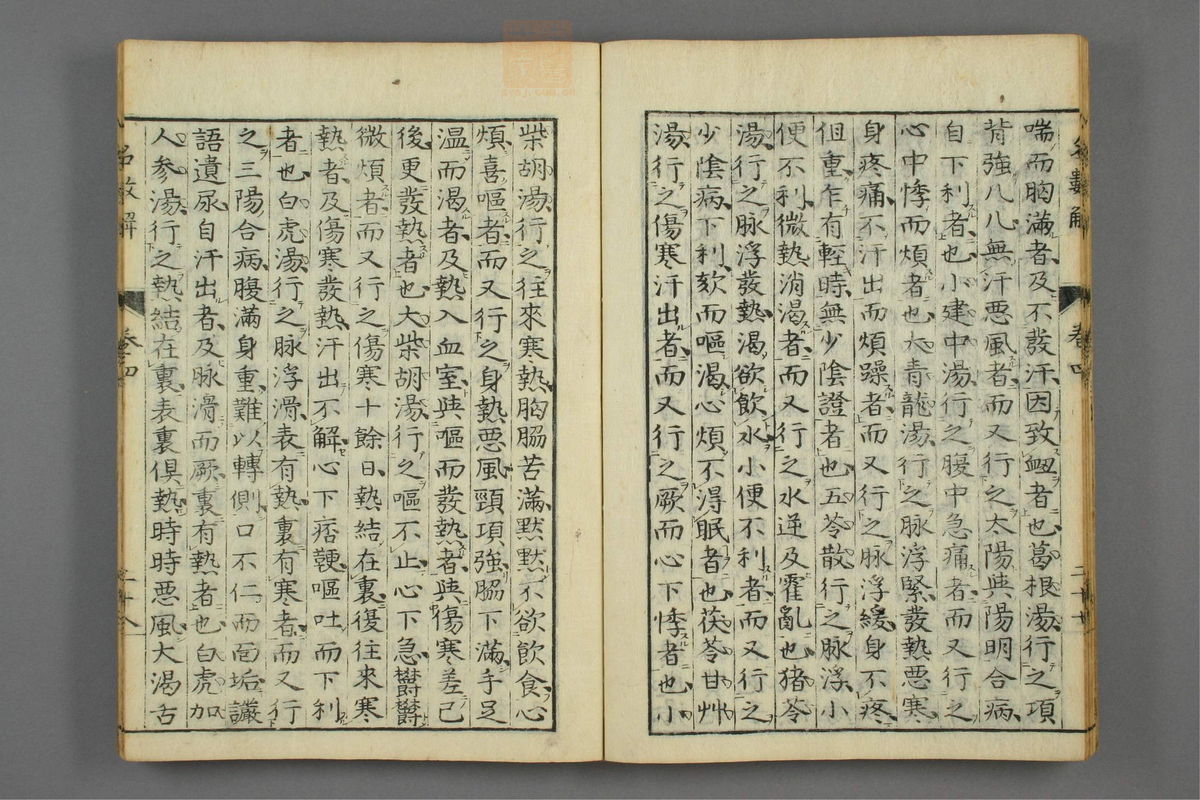 喘而胸滿者及不發汗因致衂者也葛根湯行之項
背強八八無汗悪風者而又行之太陽與陽明合病
自下利者也小建中湯行之腹中急痛者而又行之
心中悸而煩者也大青龍湯行之脉浮緊發熱悪寒
身疼痛不汗出而煩躁者而又行之脉浮緩身不疼
但重乍有輕時無少陰證者也五苓散行之脉浮小
便不利微熱消渇者而又行之水逆及霍亂也猪苓
湯行之脉浮發熱渇欲飲水小便不利者而又行之
少陰病下利欬而嘔渇心煩不得眠者也茯苓甘艸
湯行之傷寒汗出者而又行之厥而心下悸者也小
柴胡湯行之往來寒熱胸脇苦滿黙黙不欲飲食心
煩喜嘔者而又行之身熱悪風頸項強脇下滿手足
温而渇者及熱入血室與嘔而發熱者與傷寒差已
後更發熱者也大柴胡湯行之嘔不止心下急欝欝
微煩者而又行之傷寒十餘日熱結在裏復往來寒
熱者及傷寒發熱汗出不解心下痞鞕嘔吐而下利
者也白虎湯行之脉浮滑表有熱裏有寒者而又行
之三陽合病腹滿身重難以轉側口不仁而面垢讝
語遺尿自汗出者及脉滑而厥裏有熱者也白虎加
人參湯行之熱結在裏表裏俱熱時時悪風大渇舌
名數解
卷四